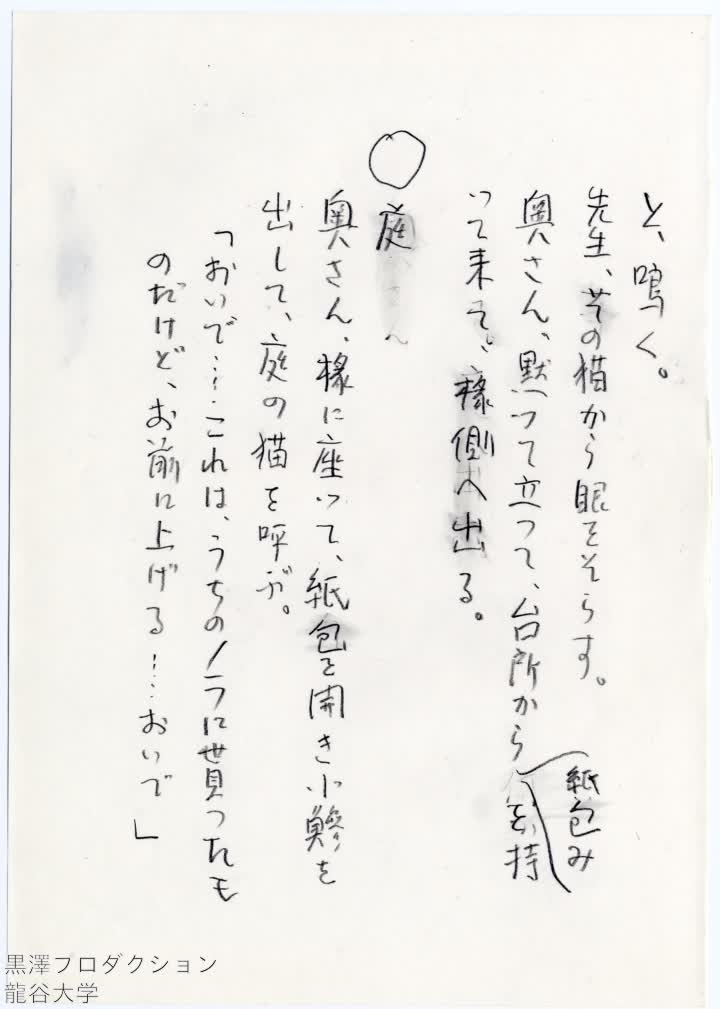 と、鳴く。
先生、その猫から眼をそらす。
奥さん、黙って立つて、台所から紙包みを持
って来て、椽側へ出る。
○庭
奥さん、椽に座って、紙包を開き小鯵を
出して、庭の猫を呼ぶ。
「おいで……これは、うちのノラに貰ったも
のだけど、お前に上げる……おいで」
黒澤プロダクション
龍谷大学